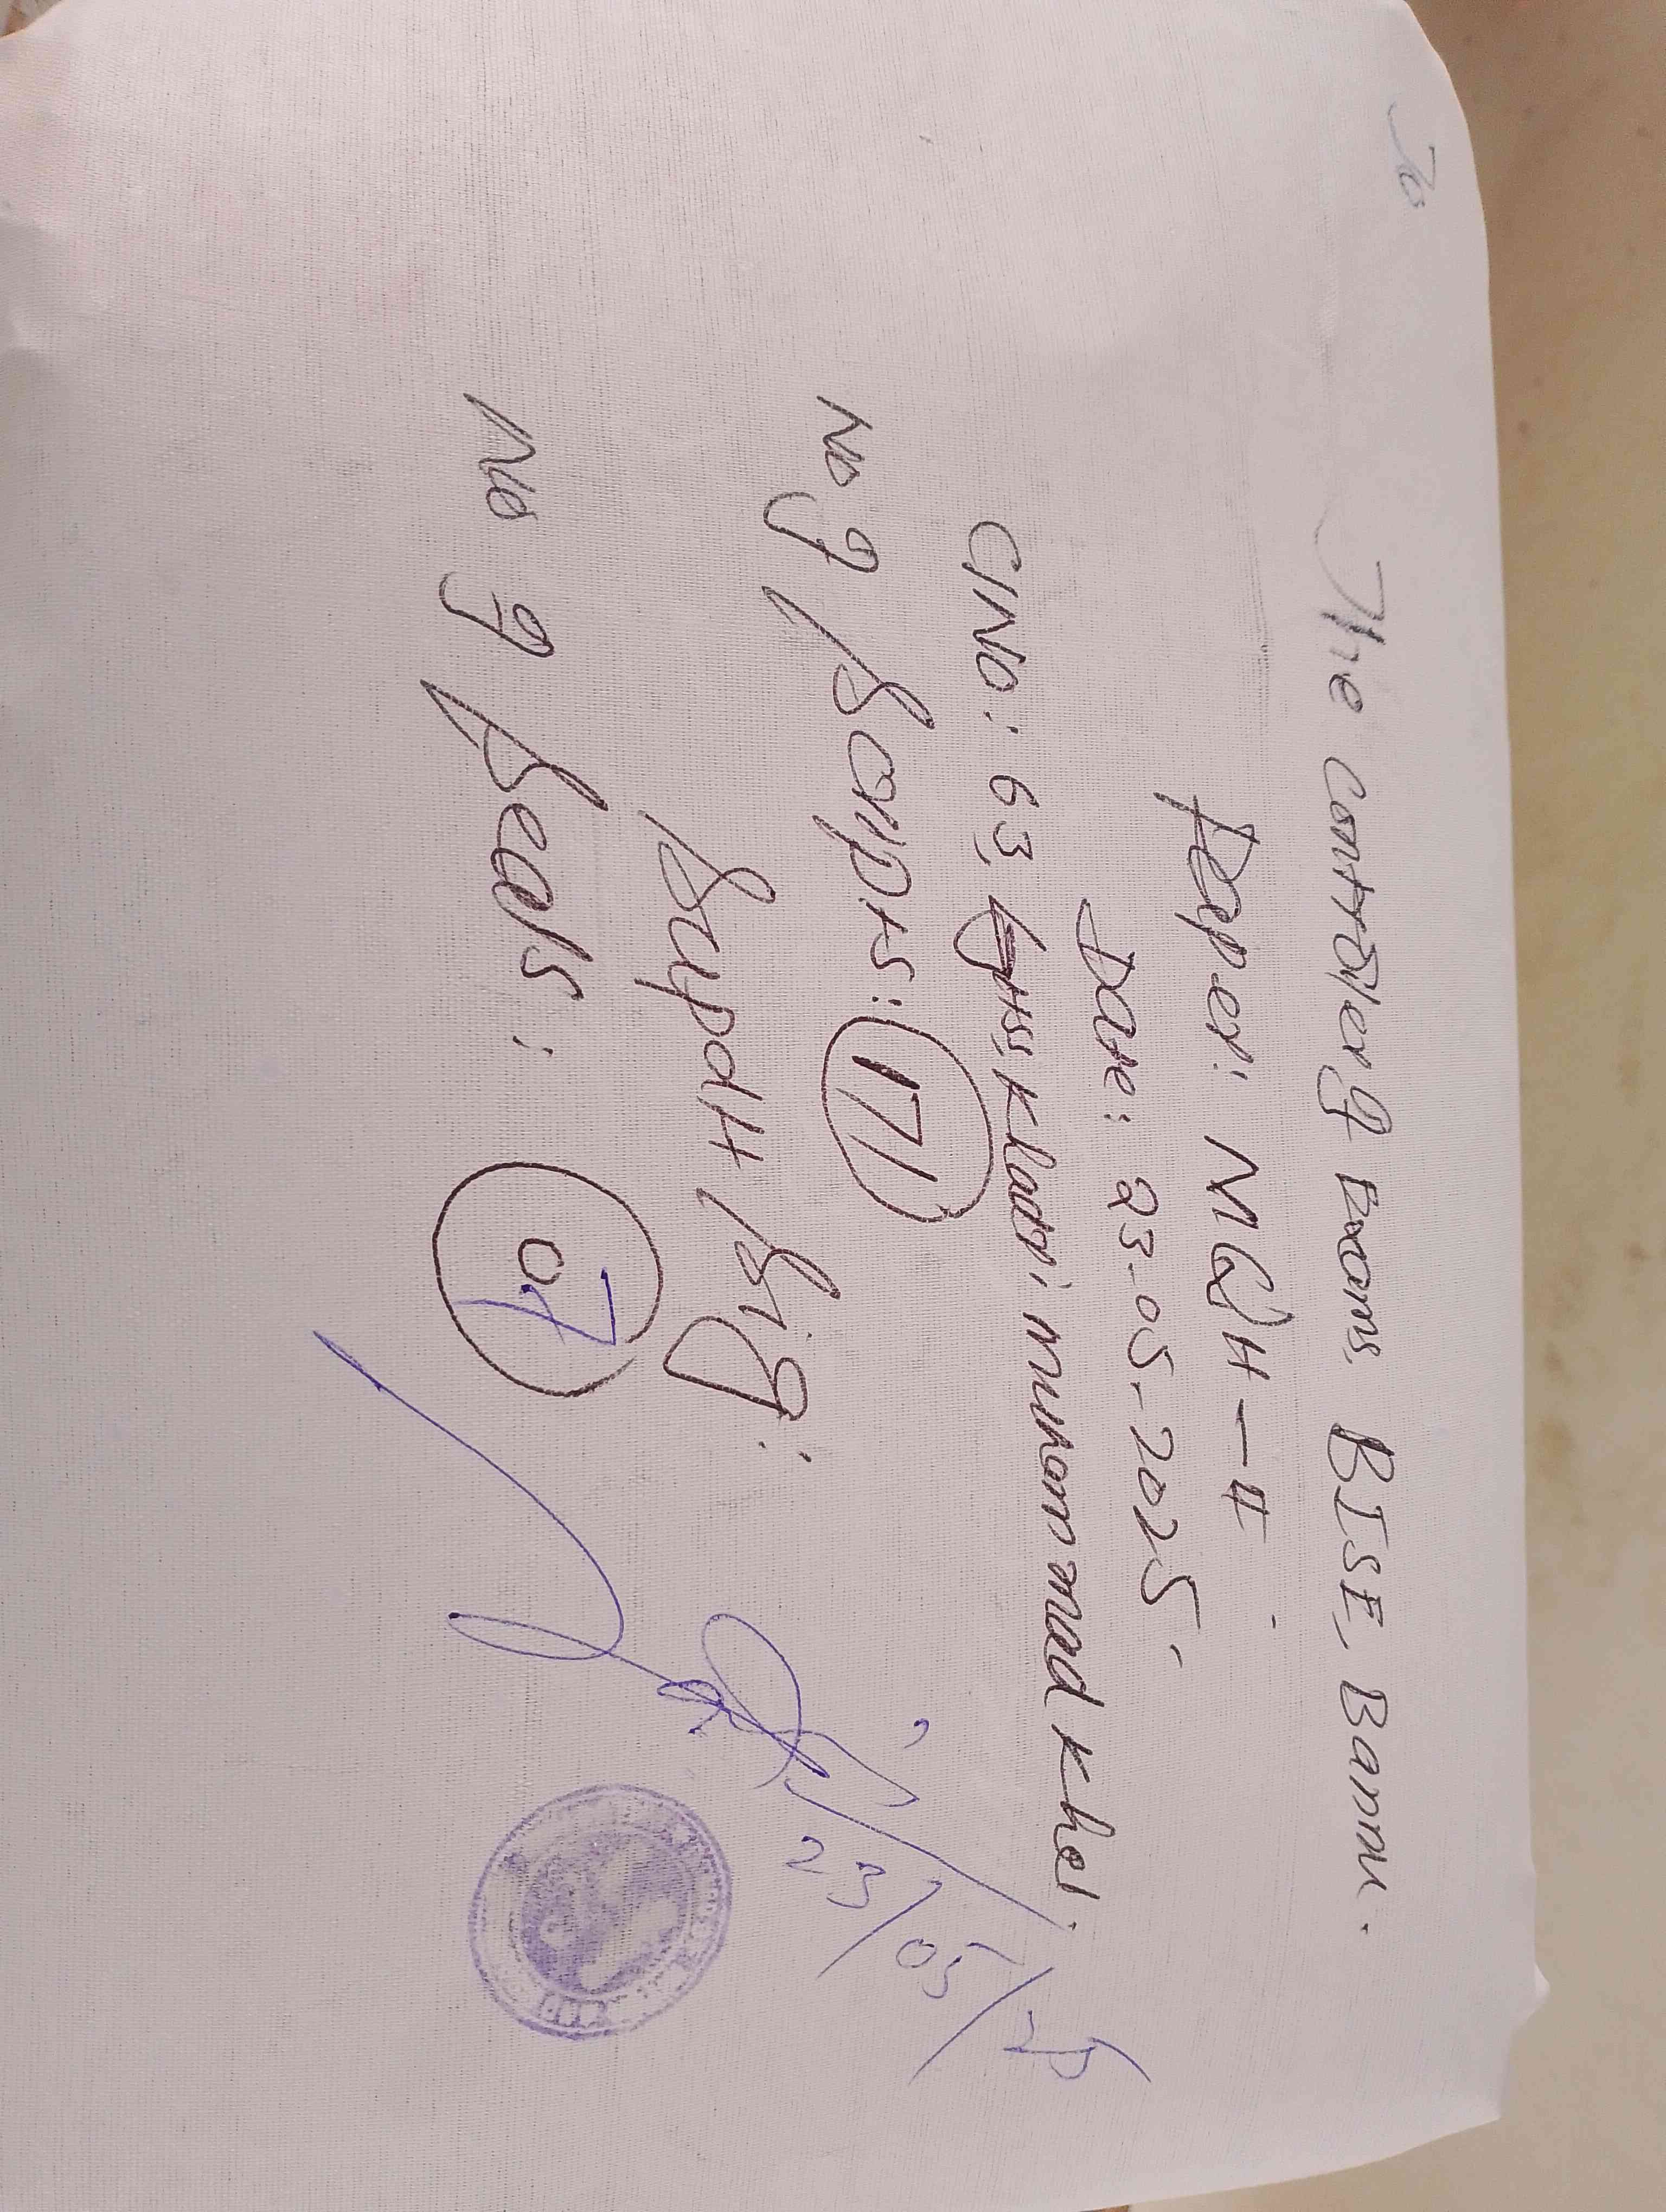 To
The controller of Exams BISE Bannu.
Paper: MQH-II
Date: 23-05-2025.
C/No: 63 GHSS Kladi Muhammad Khel.
No of Scripts: 171
Supdtt Sig:
No of Seals: 07
23/05/25